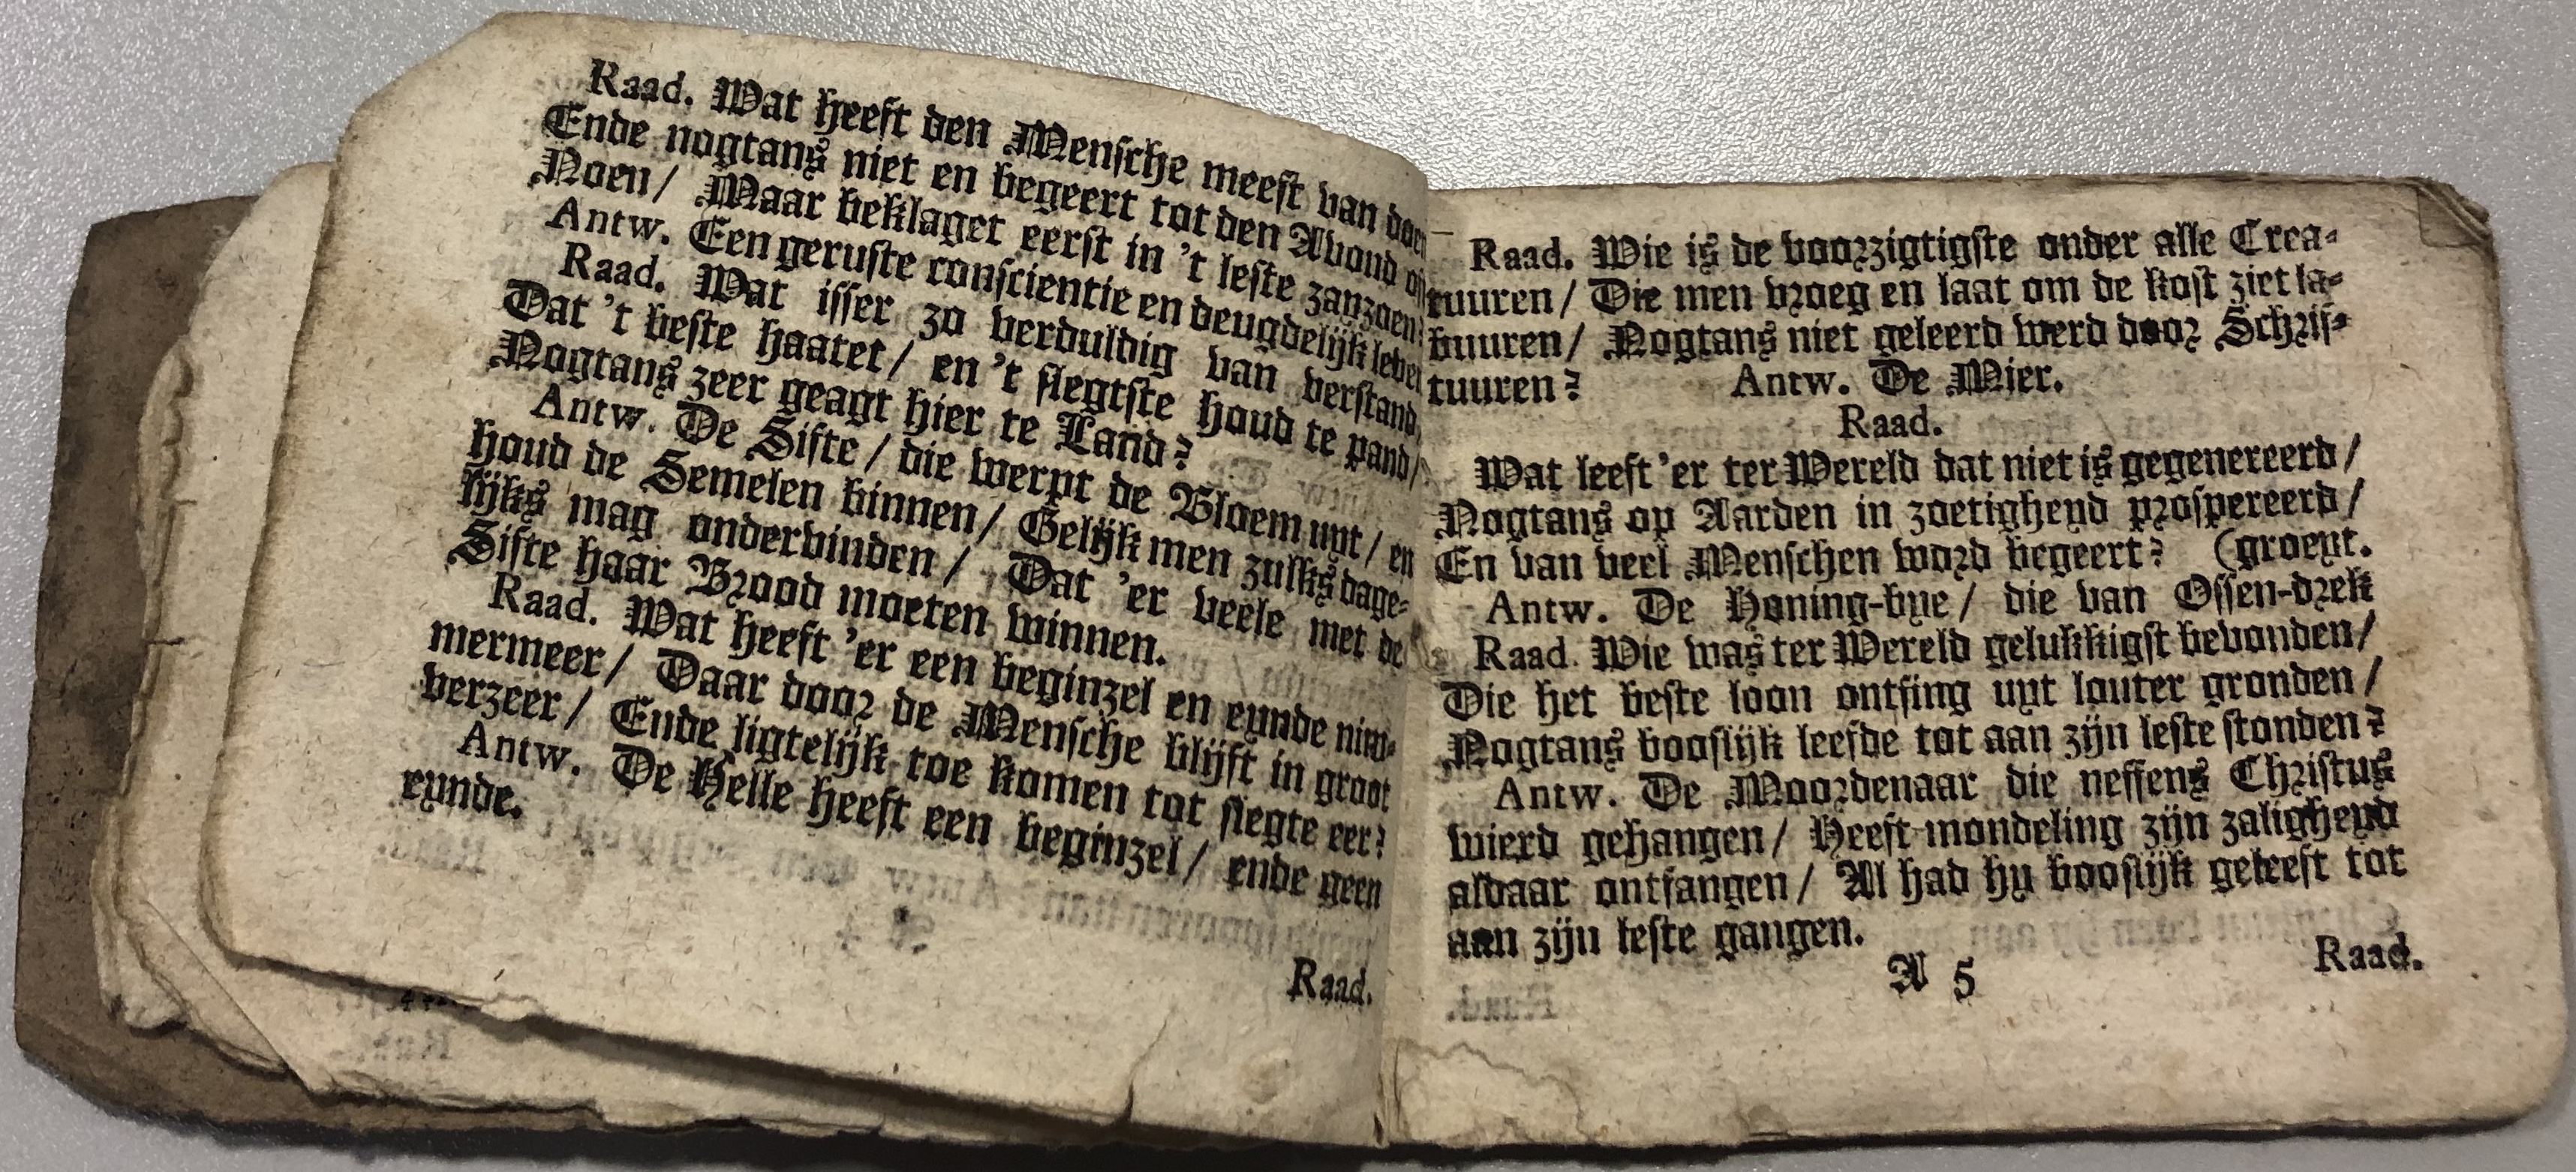 Raad. Wat heeft den Mensche meest van doen
Ende nogtans niet en begeert tot den Avond
Noen / Maar beklaget eerst in 't leste zanzoen?
Antw. Een geruste conscientie en deugdelijk leven
Raad. Wat isser zo verduldig van verstand,
Dat 't beste haatet / en 't slegtste houd te pand /
Nogtans zeer geagt hier te Land?
Antw. De Sifte / die werpt de Bloem uyt / en
houd de Semelen binnen / Gelijk men zulks dage-
lijks mag ondervinden / Dat 'er veele met de
Sifte haar Brood moeten winnen.
Raad. Wat heeft 'er een beginzel en eynde nim-
mermeer / Daar door de Mensche blijft in groot
verzeer / Ende ligtelijk toe komen tot slegte eer?
Antw. De Helle heeft een beginzel / ende geen
eynde.
Raad.
Raad. Wie is de voorzigtigste onder alle Crea-
tuuren / Die men vroeg en laat om de kost ziet la-
buuren / Nogtans niet geleerd werd door Schrif-
tuuren? Antw. De Mier.
Raad.
Wat leeft 'er ter Wereld dat niet is gegenereerd /
Nogtans op Aarden in zoetigheyd prospereerd /
En van veel Menschen word begeert? (groeyt.
Antw. De Honing-bye / die van Ossen-drek
Raad. Wie was ter Wereld gelukkigst bevonden /
Die het beste loon ontfing uyt louter gronden /
Nogtans booslijk leefde tot aan zijn leste stonden?
Antw. De Moordenaar die neffens Christus
wierd gehangen / Heeft mondeling zijn zaligheyd
aldaar ontfangen / Al had hy booslijk geleeft tot
aan zijn leste gangen.
A 5 Raad.